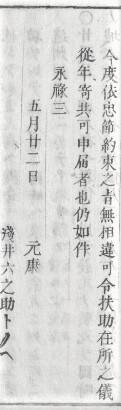 今度依忠節約束之旨無相違可令扶助在所之儀
從年寄共可申届者也仍如件
永祿三
五月廿二日　元康
淺井六之助トノヘ